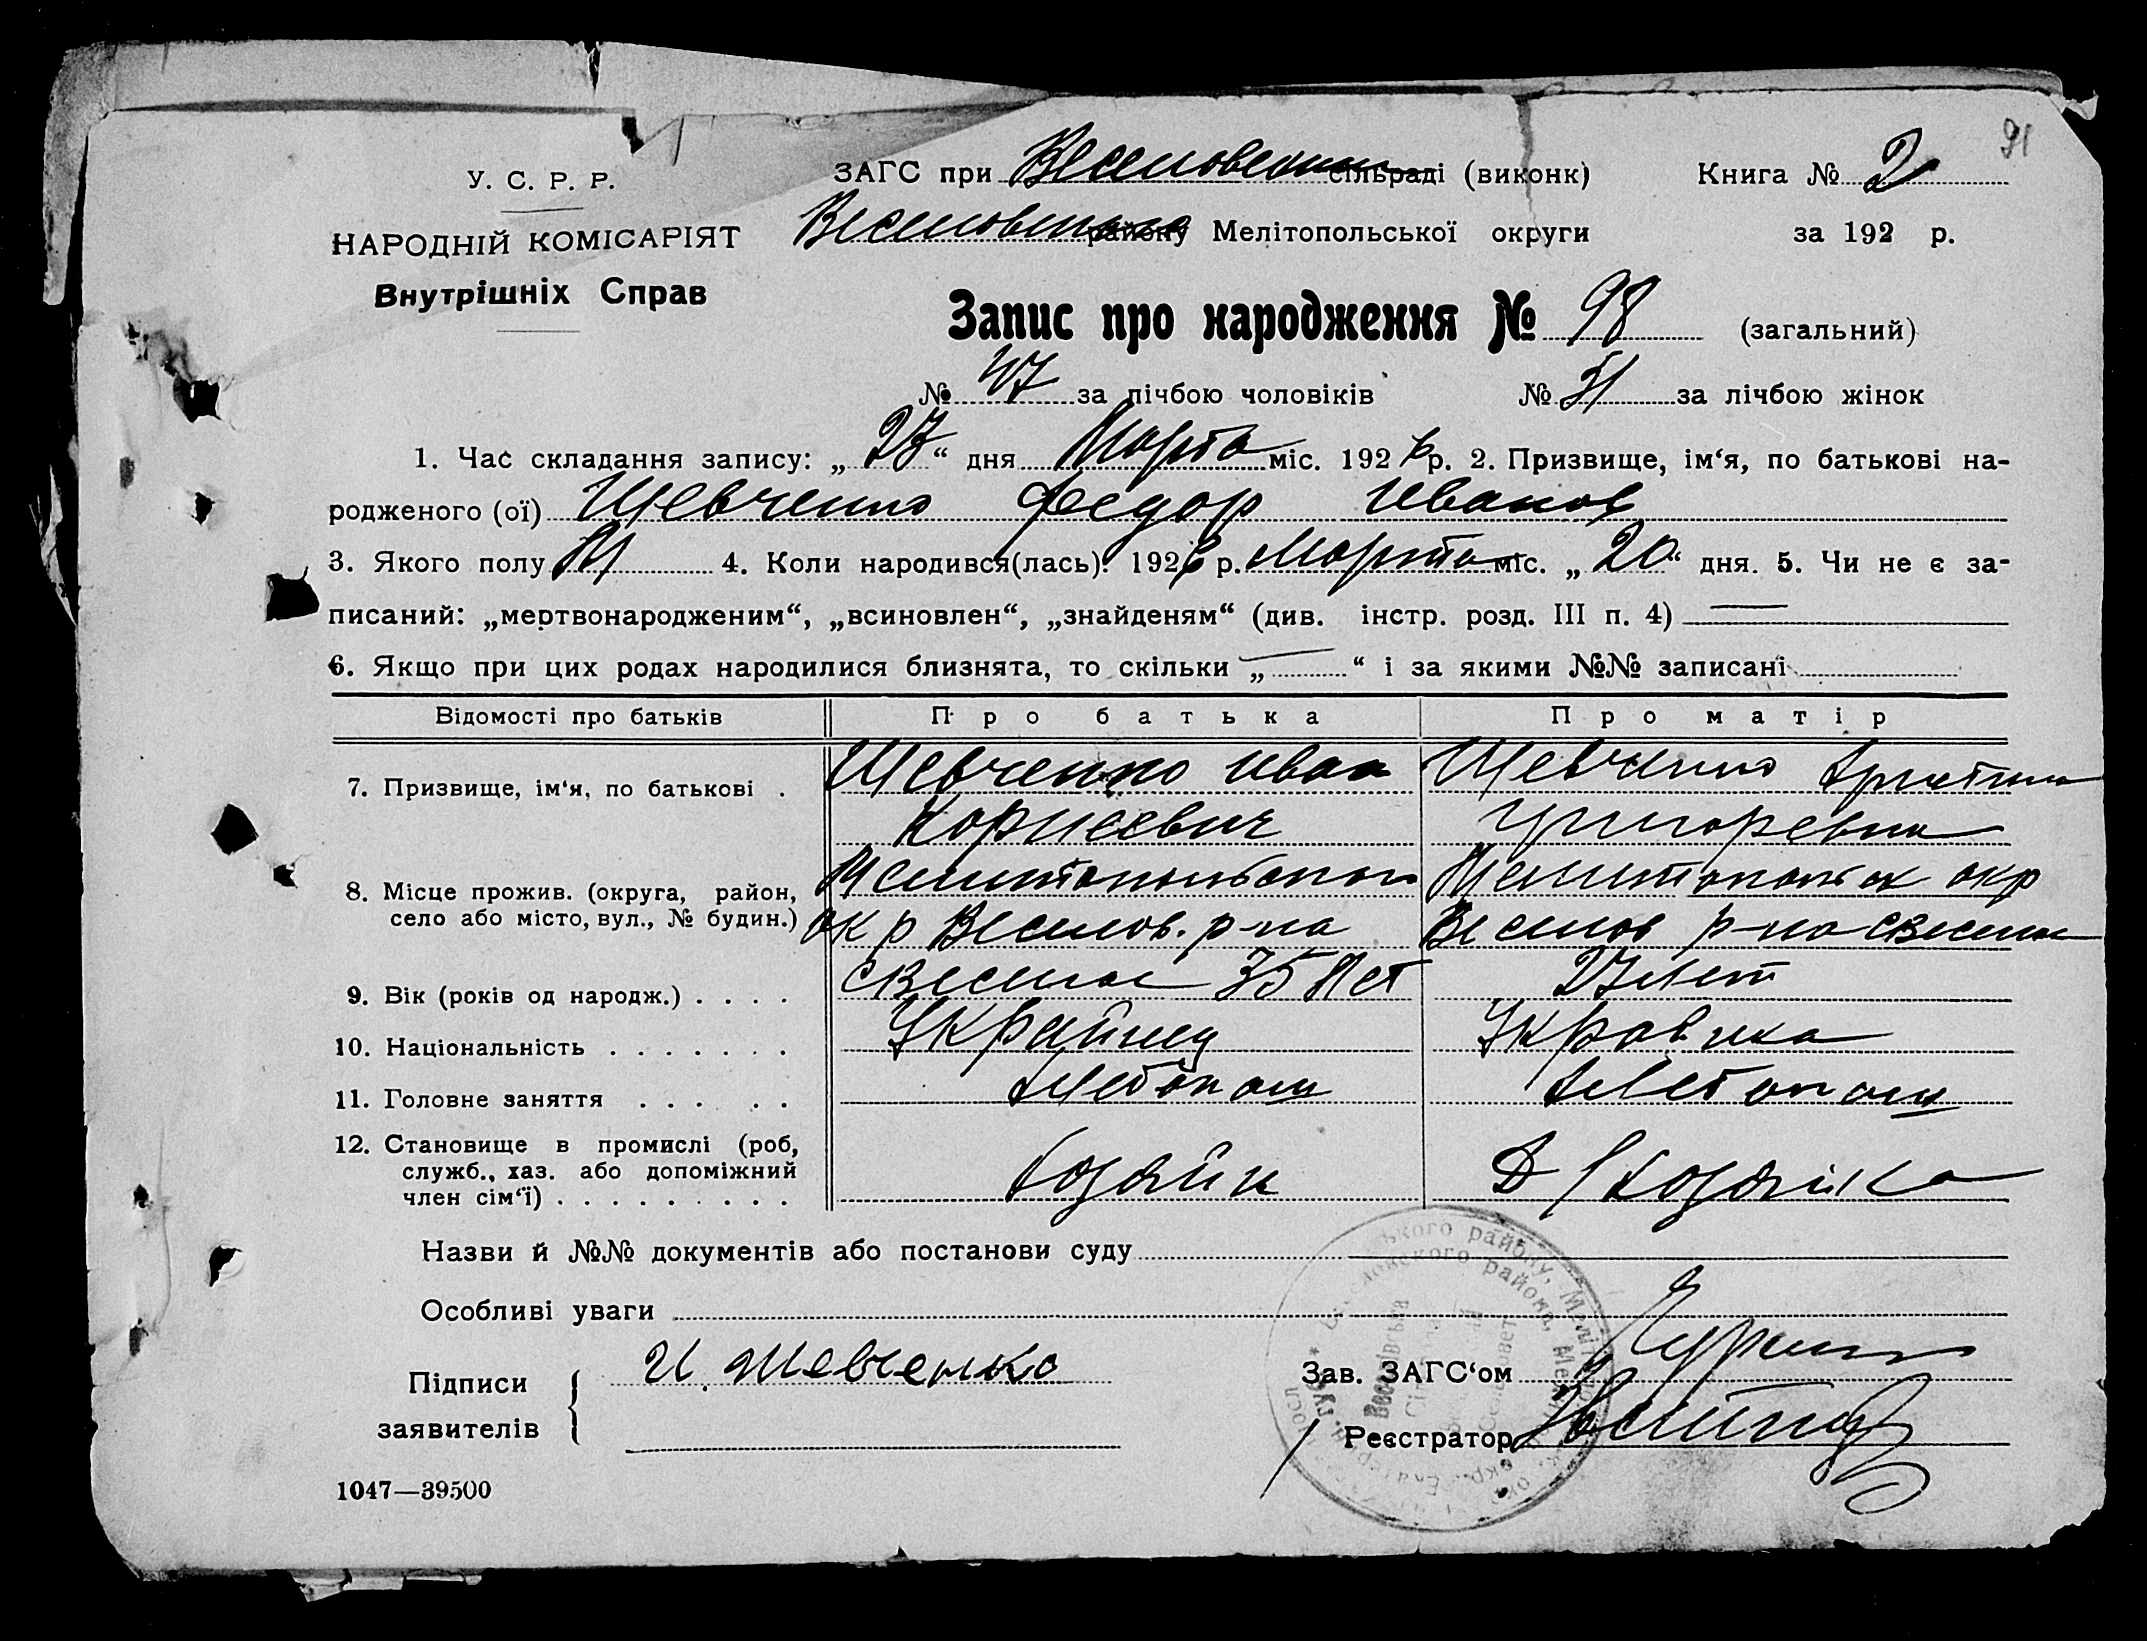 91
У. С. Р. Р.
ЗАГС при Веселовском сільраді (виконк) Книга № 2
НАРОДНІЙ КОМІСАРІЯТ
Веселовского району Мелітопольської округи за 192 р.
Внутрішніх Справ
Запис про народження № 98 (загальний)
№ 47 за лічбою чоловіків № 51 за лічбою жінок
1. Час складання запису: „27“ дня Марта міс. 1926 р. 2. Призвище, ім‘я, по батькові на-
родженого (ої) Шевченко Федор Иванов
3. Якого полу М 4. Коли народився(лась) 1926 р. Марта міс. „20“ дня. 5. Чи не є за-
писаний: „мертвонародженим“, „всиновлен“, „знайденям“ (див. інстр. розд. III п. 4) —
6. Якщо при цих родах народилися близнята, то скільки „—“ і за якими №№ записані
Відомості про батьків Про батька Про матір
7. Призвище, ім‘я, по батькові . Шевченко Иван Шевченко
Корнеевич Григоревна
8. Місце прожив. (округа, район, Мелитопольского Мелитопольск окр
село або місто, вул., № будин.) окр Веселов. р-на Веселов р-на с Веселое
9. Вік (років од народж.) . . . . с Веселое 35 лет 27 лет
10. Національність . . . . . . . Украйнец Украинка
11. Головне заняття . . . . . Хлебопаш Хлебопаш
12. Становище в промислі (роб,
служб., хаз. або допоміжний Хозяйн Д/Хозяйка
член сім‘ї) . . . . . . . . .
Назви й №№ документів або постанови суду
Особливі уваги
Підписи И. Шевченко Зав. ЗАГС‘ом
заявителів Реєстратор
1047—39500